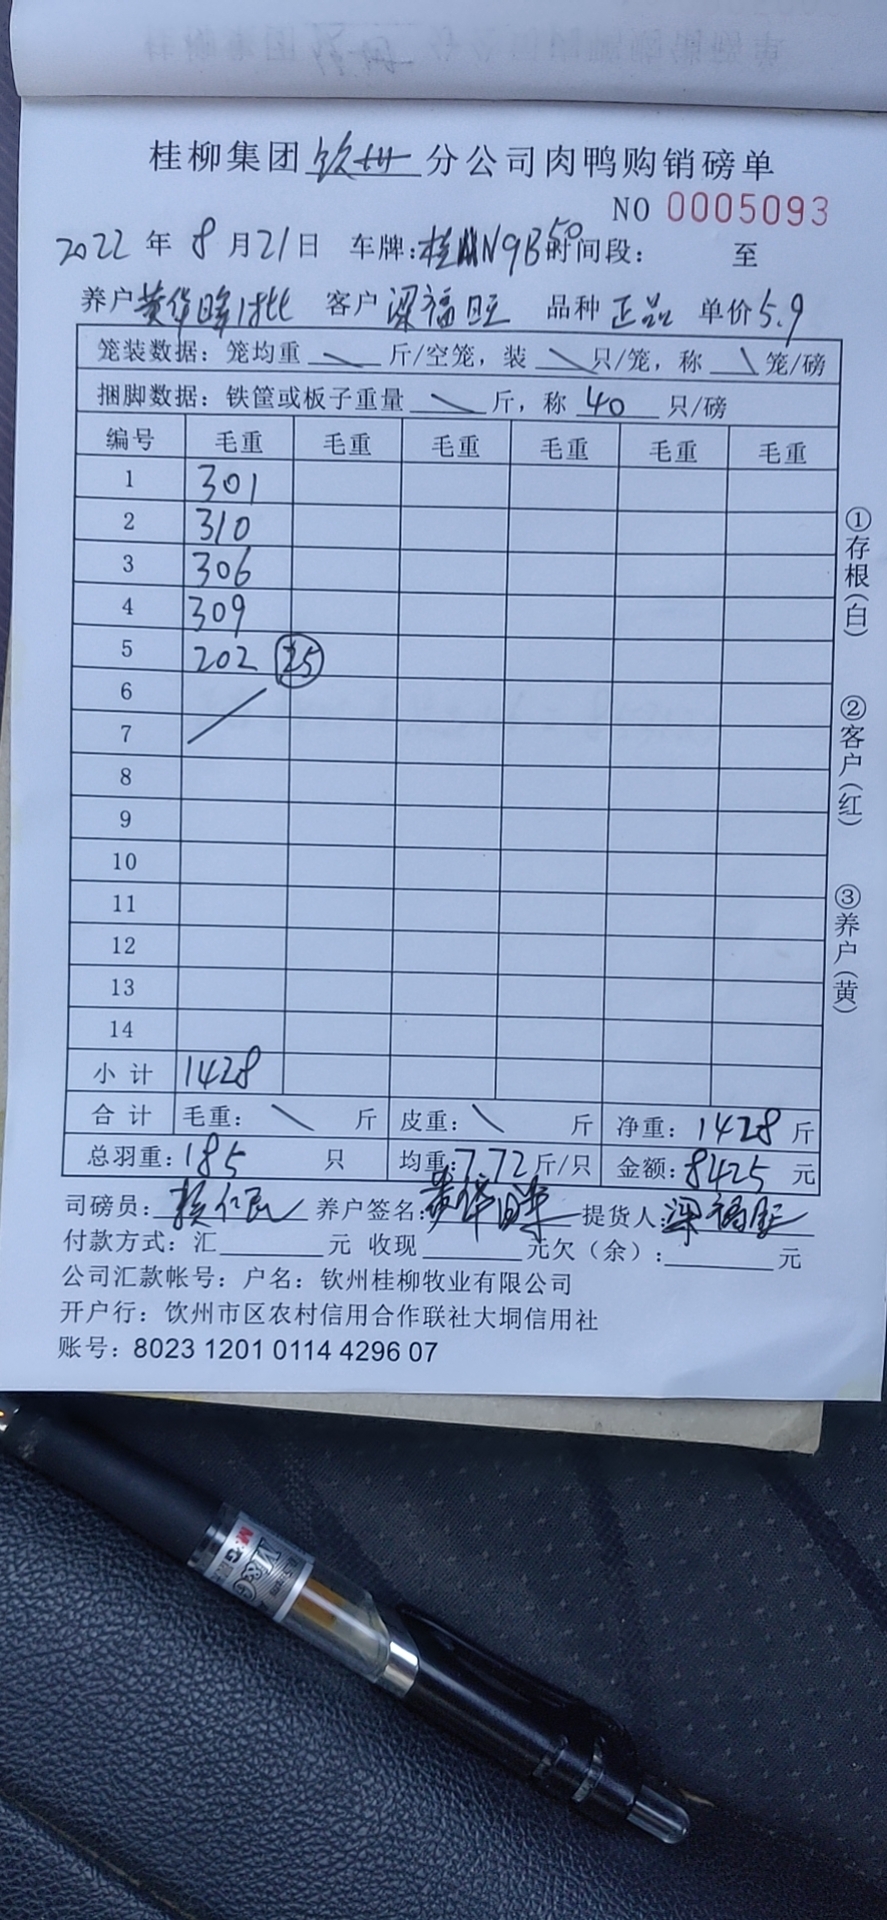 桂柳集团钦州分公司肉鸭购销磅单
NO 0005093
2022 年 8 月 21 日 车牌：桂 N9B50 时间段： 至
养户 黄华晖 18批 客户 梁福旺 品种 正品 单价 5.9
笼装数据：笼均重 \ 斤/空笼，装 \ 只/笼，称 \ 笼/磅
捆脚数据：铁筐或板子重量 \ 斤，称 40 只/磅
编号 毛重 毛重 毛重 毛重 毛重 毛重
1 301
2 310
3 306
4 309
5 202 25
6
7
8
9
10
11
12
13
14
小计 1428
合计 毛重： \ 斤 皮重： \ 斤 净重：1428 斤
总羽重：185 只 均重：7.72 斤/只 金额：8425 元
司磅员： 养户签名：黄华晖 提货人：梁福旺
付款方式：汇 元 收现 元欠（余）： 元
公司汇款帐号：户名：钦州桂柳牧业有限公司
开户行：钦州市区农村信用合作联社大垌信用社
账号：8023 1201 0114 4296 07
①存根（白）
②客户（红）
③养户（黄）
M&G